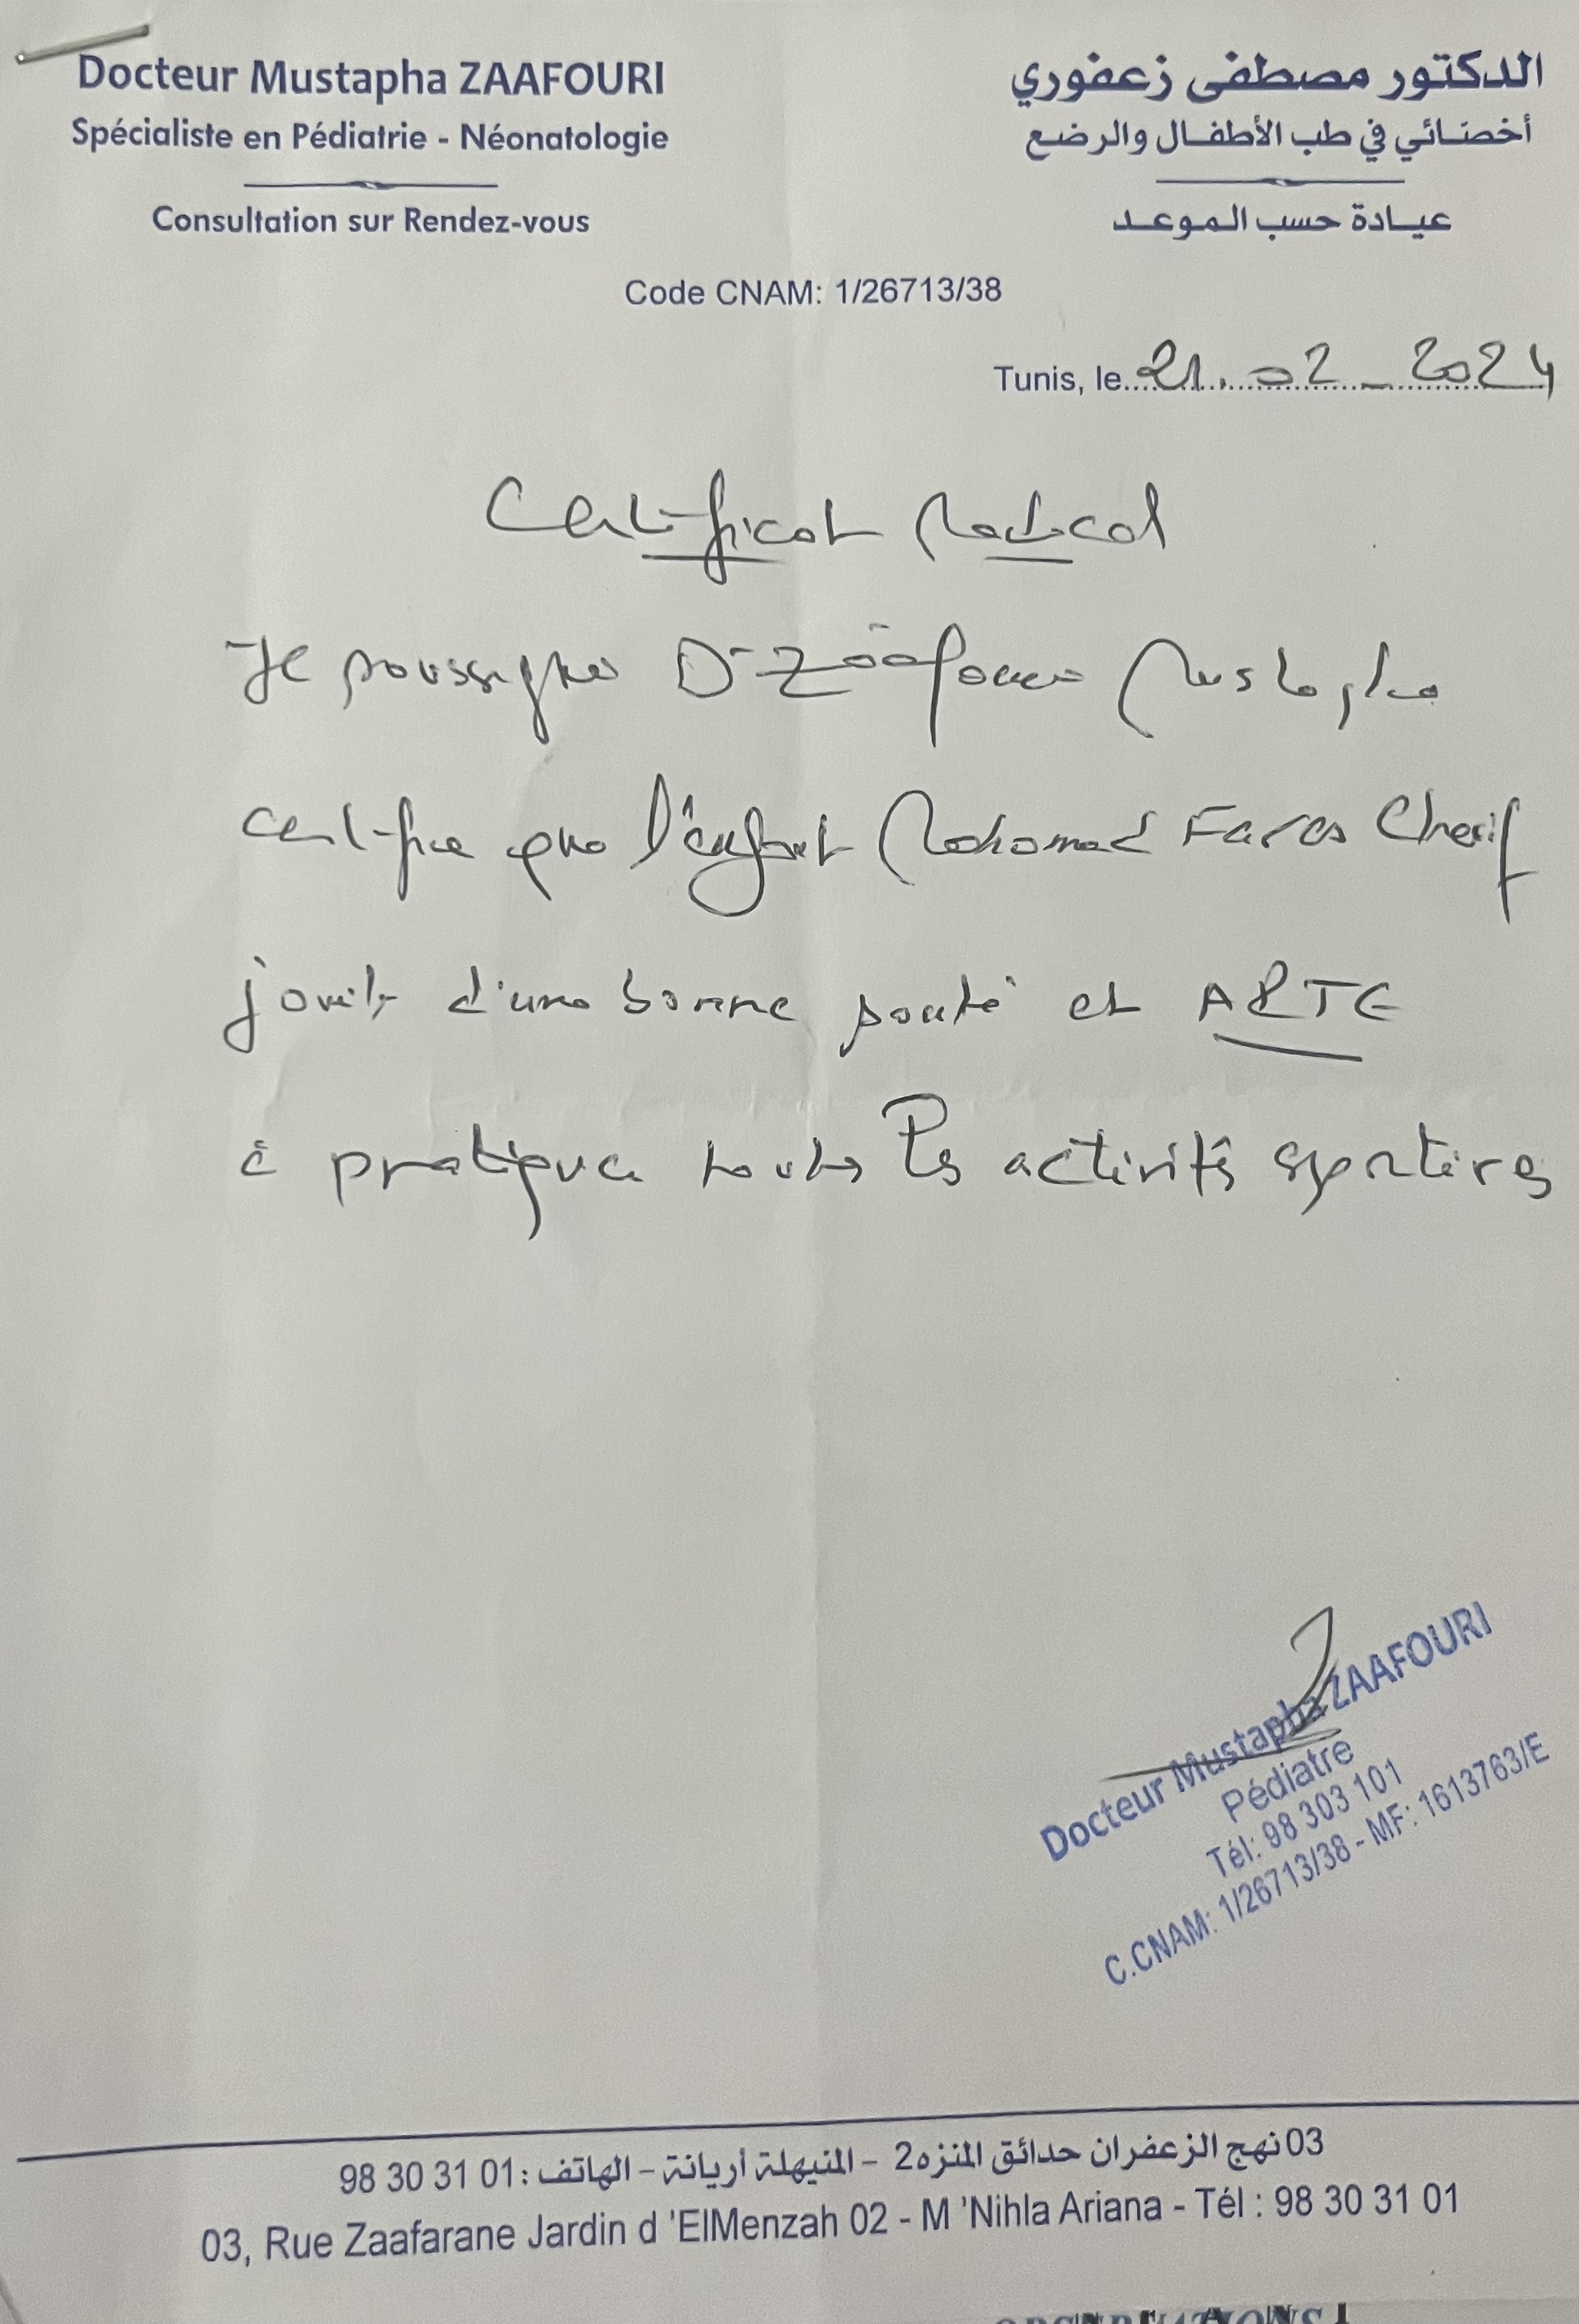 Docteur Mustapha ZAAFOURI
Spécialiste en Pédiatrie - Néonatologie
Consultation sur Rendez-vous
الدكتور مصطفى زعفوري
أخصائي في طب الأطفال والرضع
عيادة حسب الموعد
Code CNAM: 1/26713/38
Tunis, le 21.02_2024
Certificat Medical
Je soussigné Dr Zaafouri Mustapha
certifie que l'enfant Mohamed Fares Cherif
jouit d'une bonne santé et APTE
à pratiquer toutes les activités sportives
Docteur Mustapha ZAAFOURI
Pédiatre
Tél: 98 303 101
C.CNAM: 1/26713/38 - MF: 1613763/E
03 نهج الزعفران حدائق المنزه 2 - المنيهلة أريانة - الهاتف : 98 30 31 01
03, Rue Zaafarane Jardin d 'ElMenzah 02 - M 'Nihla Ariana - Tél : 98 30 31 01